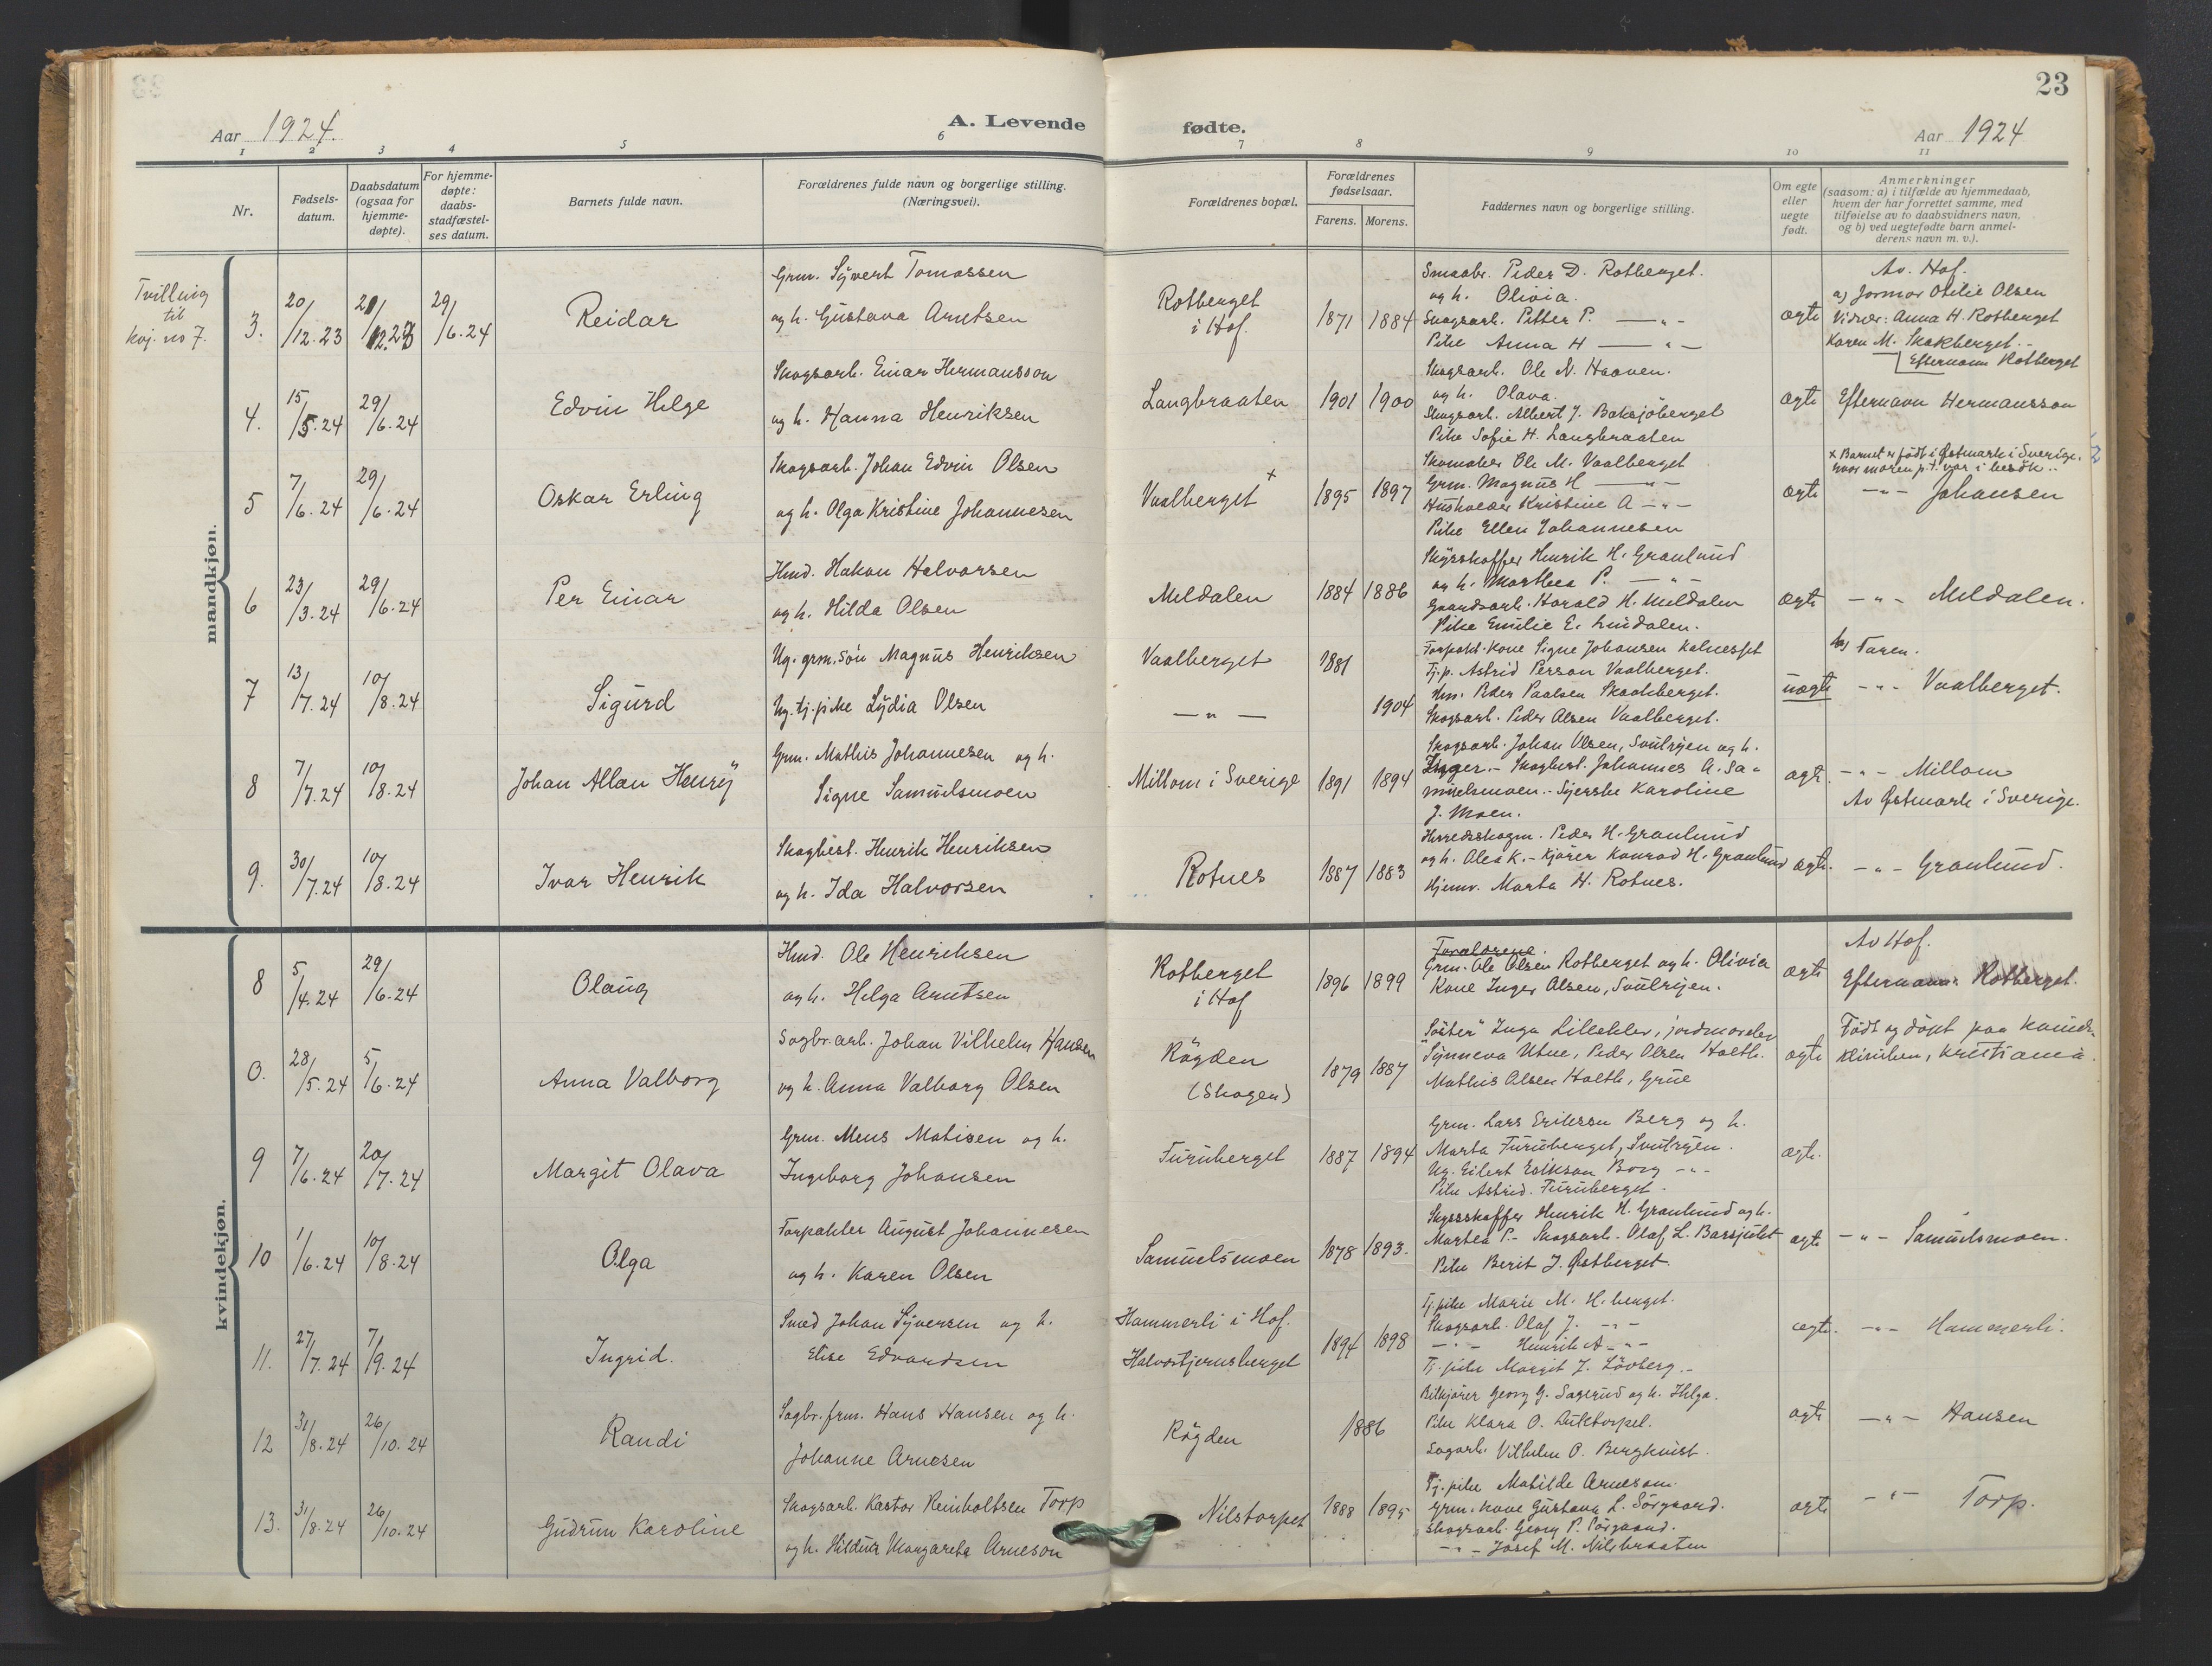 23
Aar 1924.
A. Levende fødte.
Aar 1924
1 2 3 4 5 6 7 8 9 10 11
Nr.
Fødsels-
datum.
Daabsdatum
(ogsaa for
hjemme-
døpte).
For hjemme-
døpte:
daabs-
stadfæstel-
ses datum.
Barnets fulde navn.
Forældrenes fulde navn og borgerlige stilling.
(Næringsvei).
Forældrenes bopæl.
Forældrenes
fødselsaar.
Farens. Morens.
Faddernes navn og borgerlige stilling.
Om egte
eller
uegte
født.
Anmerkninger
(saasom: a) i tilfælde av hjemmedaab,
hvem der har forrettet samme, med
tilføielse av to daabsvidners navn,
og b) ved uegtefødte barn anmel-
derens navn m. v.).
mandkjøn.
Tvilling
til
kvj. no 7.
3.
20/12.23
29/6.24
Reidar
Grm. Syvert Tomassen
og h. Gustava Arntsen
Rotberget
i Hof.
1871 1884
Smaabr. Peder D. Rotberget.
og h. Olivia.
Skogsarb. Petter P. —"—
Pike Anna H —"—
ægte
Av. Hof.
a) Jormor Otilie Olsen
Vidner: Anna H. Rotberget
Karen M. Skakberget.-
Efternavn Rotberget
4.
15/5.24
29/6.24
Edvin Helge
Skogsarb. Einar Hermansson
og h. Hanna Henriksen
Langbraaten
1901 1900
Skogsarb. Ole N. Haaven.
og h. Olava.
Skogsarb. Albert J. Baksjöberget
Pike Sofie H. Langbraaten
ægte
Efternavn Hermansson
5
7/6.24
29/6.24
Oskar Erling
Skogsarb. Johan Edvin Olsen
og h. Olga Kristine Johannesen
Vaalberget x
1895 1897
Skomaker Ole M. Vaalberget
Grm. Magnus H —"—
Husholder Kristine A —"—
Pike Ellen Johannesen
ægte
x Barnet er født i Østmark i Sverige.
hvor moren p.t. var i besøk..
—"— Johansen
6
23/3.24
29/6.24
Per Einar
Hmd. Hakon Halvorsen
og h. Hilda Olsen
Meldalen
1884 1886
Skysskaffer Henrik H. Granlund
og h. Marthea P. —"—
Gaardsarb. Harald H. Meldalen
Pike Emilie E. Lindalen.
Ægte
—"— Meldalen.
7
13/7.24
10/8.24
Sigurd
Ug. grm. søn Magnus Henriksen
Ug. tj. pike Lydia Olsen
Vaalberget
—"—
1881
1904
Torpakt. Kone Signe Johansen Kalneset
Tj. p. Astrid Person Vaalberget.
Hm. Peder Paalsen Skakberget.
Skogsarb. Peder Olsen Vaalberget.
uægte
b) Faren.
—"— Vaalberget.
8
7/7.24
10/8.24
Johan Allan Henry
Grm. Mathis Johannesen og h.
Signe Samuelsmoen
Millom i Sverige
1891 1894
Skogsarb. Johan Olsen, Svulryen og h.
Inger.- Skogbest. Johannes A. Sa-
muelsmoen.- Syerske Karoline
J. Moen.
ægte.
—"— Millom
Av Østmark i Sverige.
9.
30/7.24
10/8.24
Ivar Henrik
Skogbest. Henrik Henriksen
og h. Ida Halvorsen
Rotnes
1887 1883
Herredsskogm. Peder H. Granlund
og h. Olea K.- Kjører Konrad H. Granlund
Hjemv. Marta H. Rotnes.
ægte.
—"— Granlund.
kvindekjøn.
8
5/4.24
29/6.24
Olaug
Hmd. Ole Henriksen
og h. Helga Arntsen
Rotberget
i Hof
1896 1899
Forældrene.
Grm. Ole Olsen Rotberget og h. Olivia
Kone Inger Olsen, Svulryen.
ægte
Av Hof.
Efternavn Rotberget.
0.
28/5.24
5/6.24
Anna Valborg
Sagbr. arb. Johan Vilhelm Hansen
og h. Anna Valborg Olsen
Røgden
(Skogen)
1879 1887
"Søster" Inga Lillehler, jordmorelev
Synneva Utne, Peder Olsen Holth.
Mathis Olsen Holth, Grue
ægte
Født og døpt paa Kvinde-
klinikken, Kristiania.
9
7/6.24
20/7.24
Margit Olava
Grm. Mens Matisen og h.
Ingeborg Johansen
Furuberget
1887 1894
Grm. Lars Erikson Berg og h.
Marta Furuberget, Svulryen.
Ug. Eilert Erikson Borg —"—
Pike Astrid. Furuberget.
ægte.
10
1/6.24
10/8.24
Olga
Torpakter August Johannesen
og h. Karen Olsen
Samuelsmoen
1878 1893.
Skysskaffer Henrik H. Granlund og h.
Martea P.- Skogsarb. Olaf L. Barsjulet
Pike Berit J. Østberget.
ægte
—"— Samuelsmoen.
11.
27/7.24
7/9.24
Ingrid.
Smed Johan Syversen og h.
Elise Edvardsen
Hammerli i Hof.
Halvostjernsberget
1894 1898
Tj. pike Marie M. H.berget.
Skogsarb. Olaf J. —"—
—"— Henrik A —"—
Tj. pike Margit J. Lövberg.-
ægte.
—"— Hammerli.
12
31/8.24
26/10.24
Randi
Sagbr. frm. Hans Hansen og h.
Johanne Arnesen
Røgden
1886
Bilkjører Georg G. Sagerud og h. Helga.
Pike Klara O.
Sagarb. Vilhelm O. Bergkvist.
ægte
—"— Hansen
13.
31/8.24
26/10.24
Gudrun Karoline
Skogsarb. Kastor Reinholtsen Torp
og h. Hildur Margareta Arneson
Nilstorpet
1888 1895
Tj. pike Matilde Arneson.
Grm. kone Gustava L. Sörgaard.
Skogsarb. Georg P. Sörgaard.
—"— Josef M. Nilsbraaten
ægte
—"— Torp.